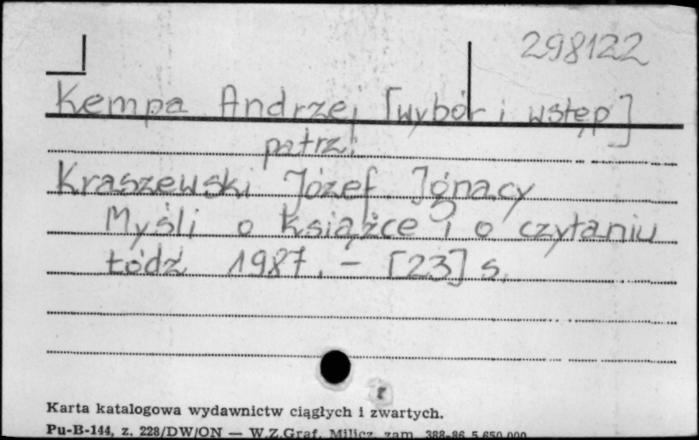 298122
Kempa Andrzej [wybór i wstęp]
patrz:
Kraszewski Józef Ignacy
Myśli o książce i o czytaniu
Łódź 1987. – [23] s.
Karta katalogowa wydawnictw ciągłych i zwartych.
Pu-B-144, z. 228/DW/ON — W.Z.Graf. Milicz zam. 388-86 5.650.000